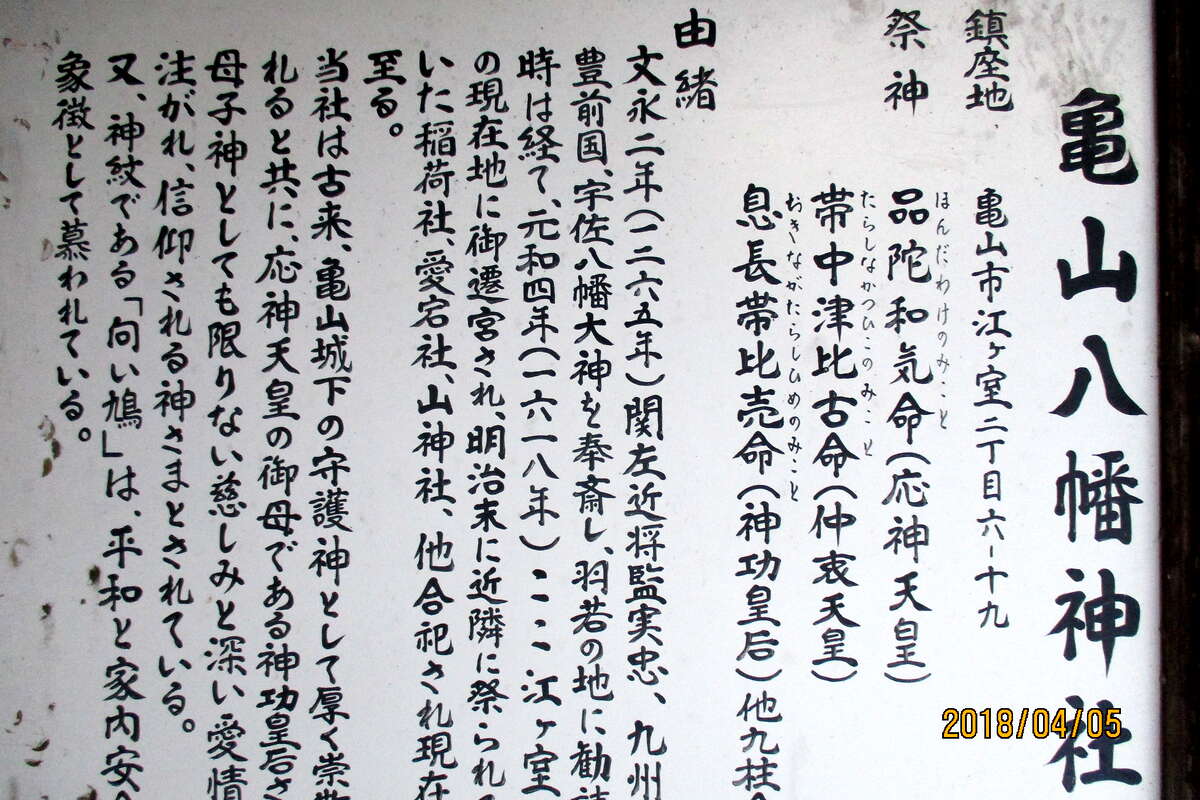 亀山八幡神社
鎮座地 亀山市江ヶ室二丁目六-十九
祭神 品陀和気命(応神天皇)
ほんだわけのみこと
帯中津比古命(仲哀天皇)
たらしなかつひこのみこと
息長帯比売命(神功皇后)他九柱
おきながたらしひめのみこと
由緒
文永二年(一二六五年)関左近将監実忠、九州
豊前国、宇佐八幡大神を奉斎し、羽若の地に勧
時は経て、元和四年(一六一八年)ここ江ヶ室
の現在地に御遷宮され、明治末に近隣に祭られ
いた稲荷社、愛宕社、山神社、他合祀され現在
至る。
当社は古来、亀山城下の守護神として厚く崇
れると共に、応神天皇の御母である神功皇后さ
母子神としても限りない慈しみと深い愛情
注がれ、信仰される神さまとされている。
又、神紋である「向い鳩」は、平和と家内安
象徴として慕われている。
2018/04/05